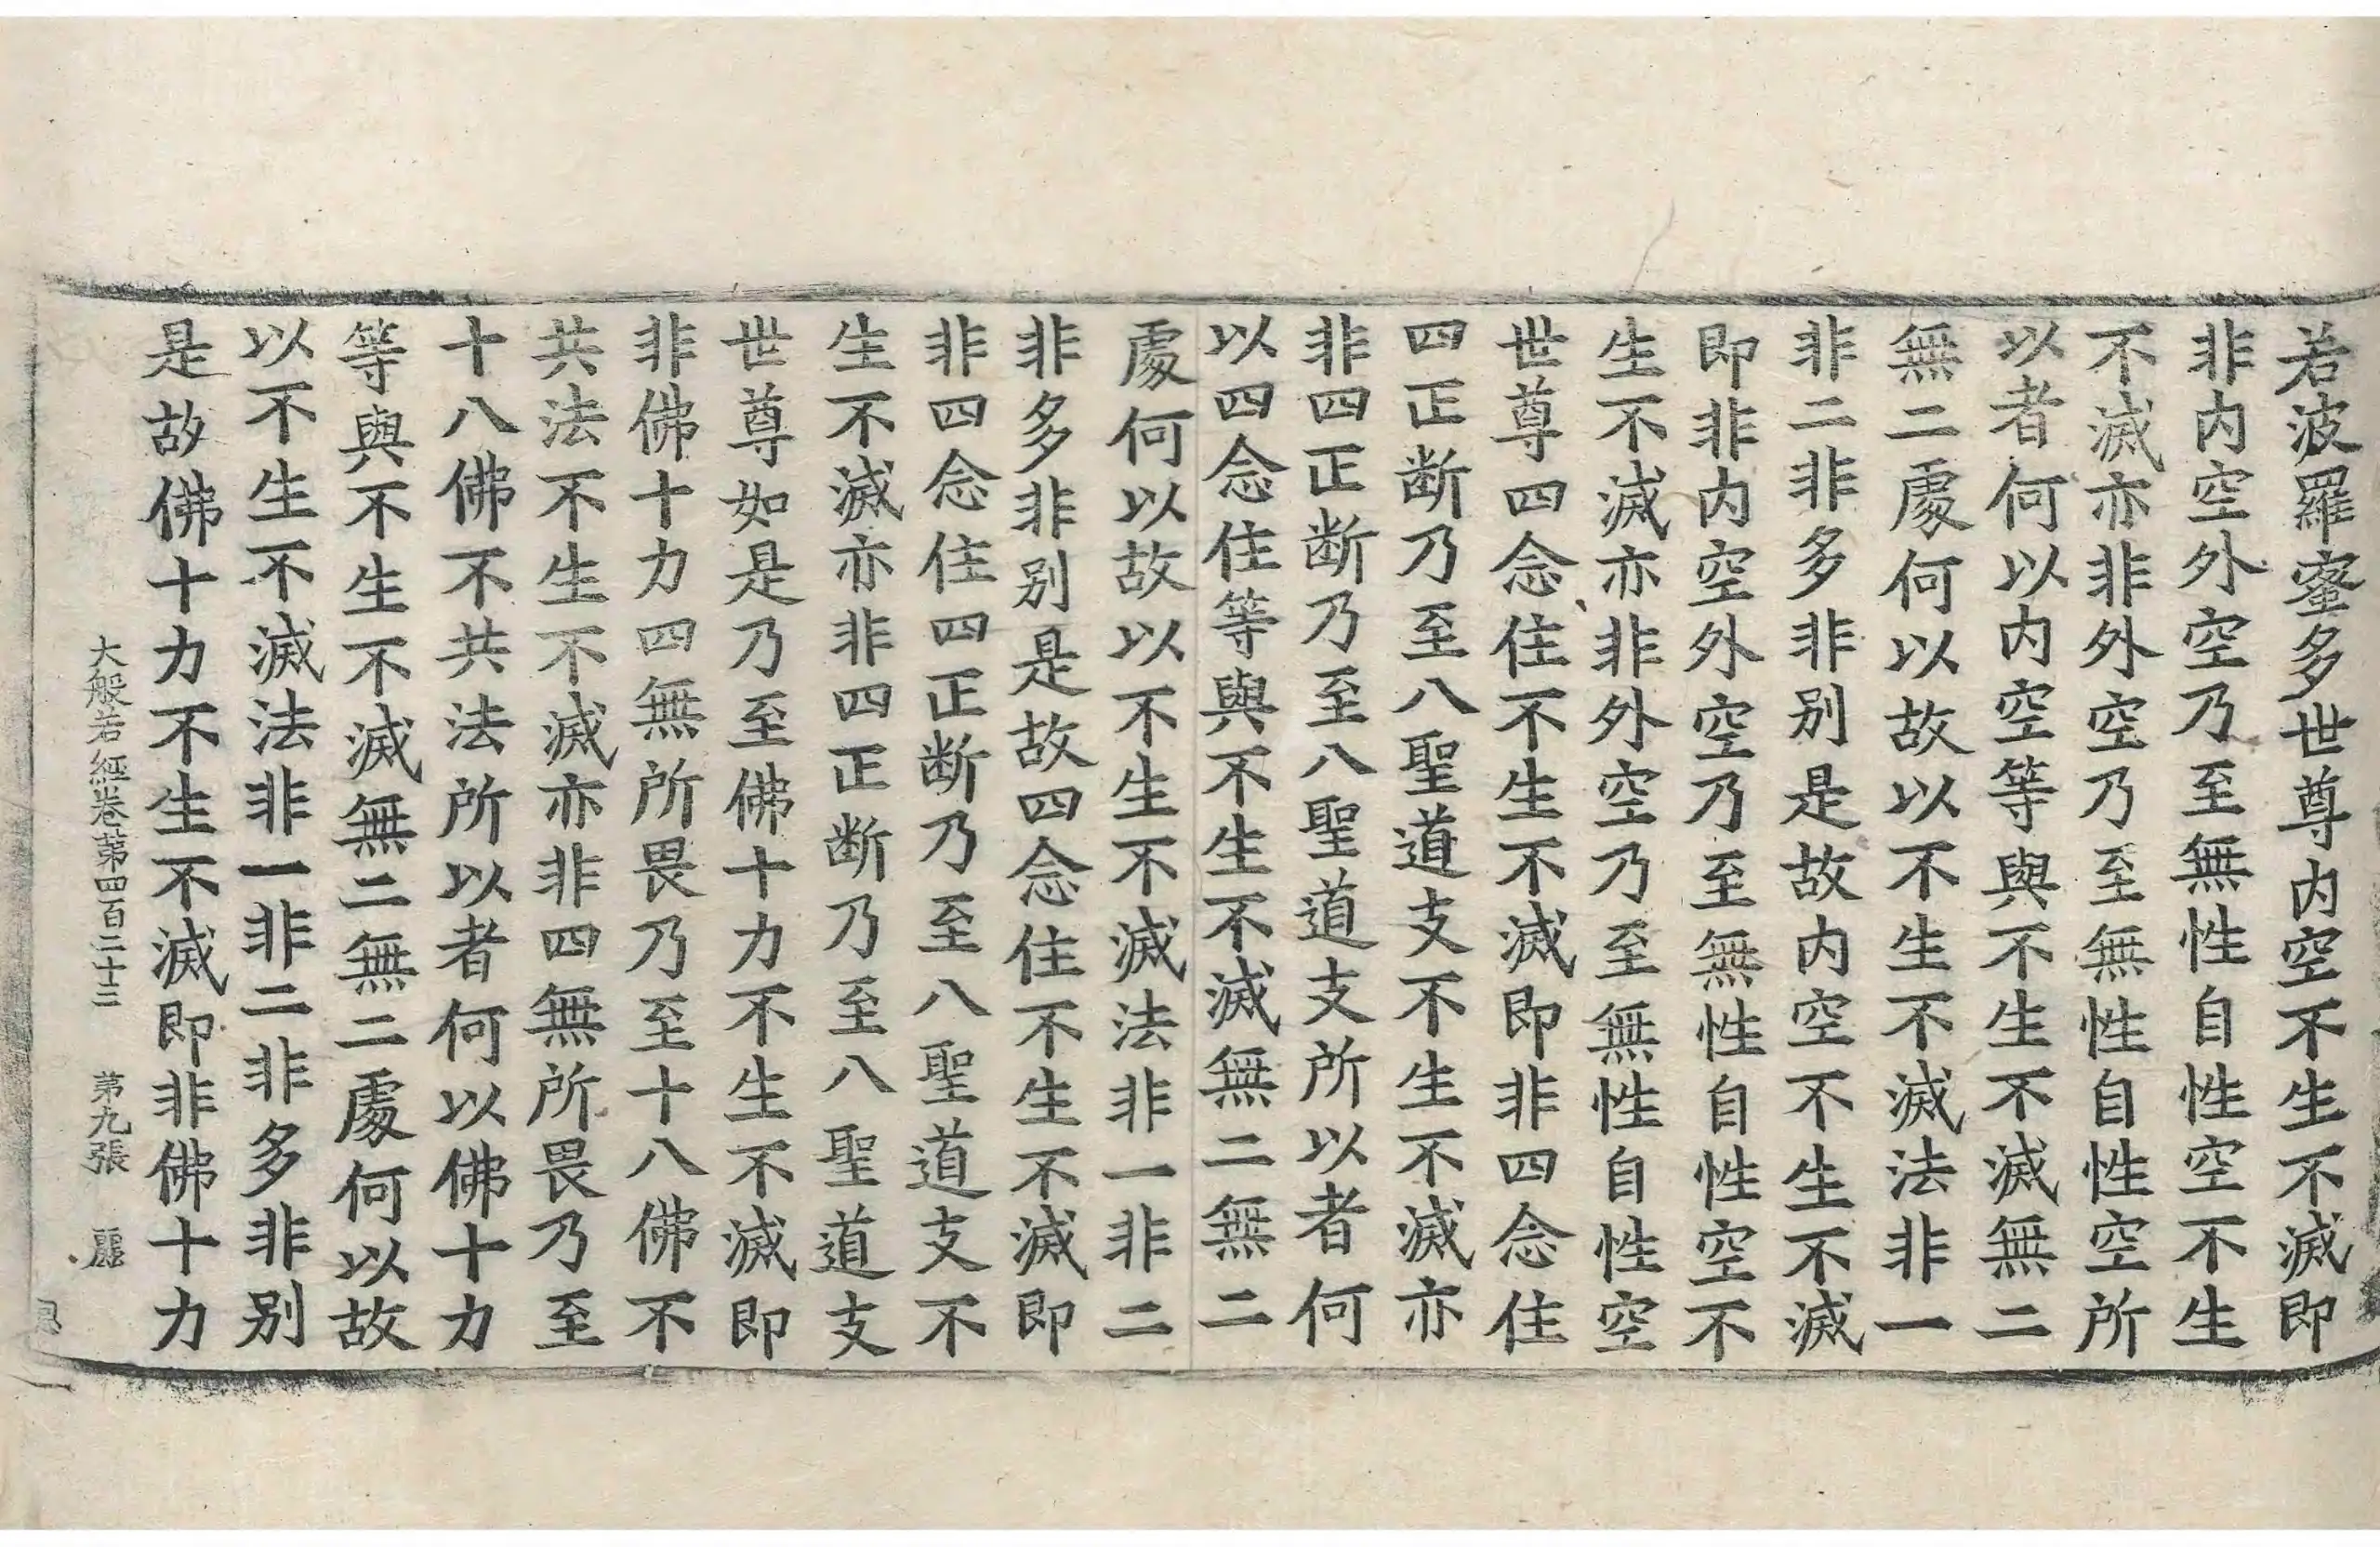 若波羅蜜多世尊內空不生不滅即
非內空外空乃至無性自性空不生
不滅亦非外空乃至無性自性空所
以者何以內空等與不生不滅無二
無二處何以故以不生不滅法非一
非二非多非別是故內空不生不滅
即非內空外空乃至無性自性空不
生不滅亦非外空乃至無性自性空
世尊四念住不生不滅即非四念住
四正断乃至八聖道支不生不滅亦
非四正断乃至八聖道支所以者何
以四念住等與不生不滅無二無二
處何以故以不生不滅法非一非二
非多非別是故四念住不生不滅即
非四念住四正断乃至八聖道支不
生不滅亦非四正断乃至八聖道支
世尊如是乃至佛十力不生不滅即
非佛十力四無所畏乃至十八佛不
共法不生不滅亦非四無所畏乃至
十八佛不共法所以者何以佛十力
等與不生不滅無二無二處何以故
以不生不滅法非一非二非多非別
是故佛十力不生不滅即非佛十力
大般若經卷第四百二十三 第九張 麗